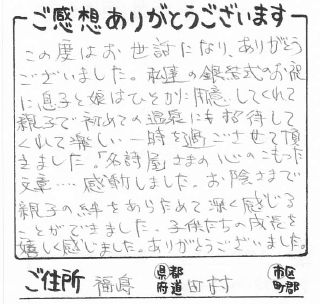 ご感想ありがとうございます
この度はお世話になり、ありがとう
ございました。私達の銀婚式のお祝
に息子と娘はひそかに用意してくれて
親子で初めての温泉にも招待して
くれて楽しい一時を過ごさせて頂
きました。「名詩屋さまの心のこもった
文章‥‥感謝しました。お陰さまで
親子の絆をあらためて深く感じる
ことができました。子供たちの成長を
嬉しく感じました。ありがとうございました。
ご住所 福島 都道府県 田村 市区町郡